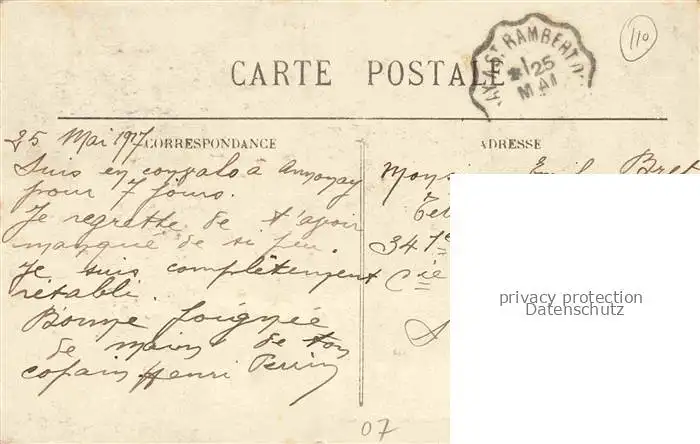 CARTE POSTALE
ST RAMBERT
25
MAI
110
25 Mai 1917
CORRESPONDANCE
ADRESSE
Suis en convalo à Annonay
pour 7 jours.
Je regrette de t'avoir
manqué de si peu.
Je suis complètement
rétabli.
Bonne poignée
de mains de ton
copain Henri Perrin
Monsieur Emile Bret
347e
Cie
privacy protection
Datenschutz
07